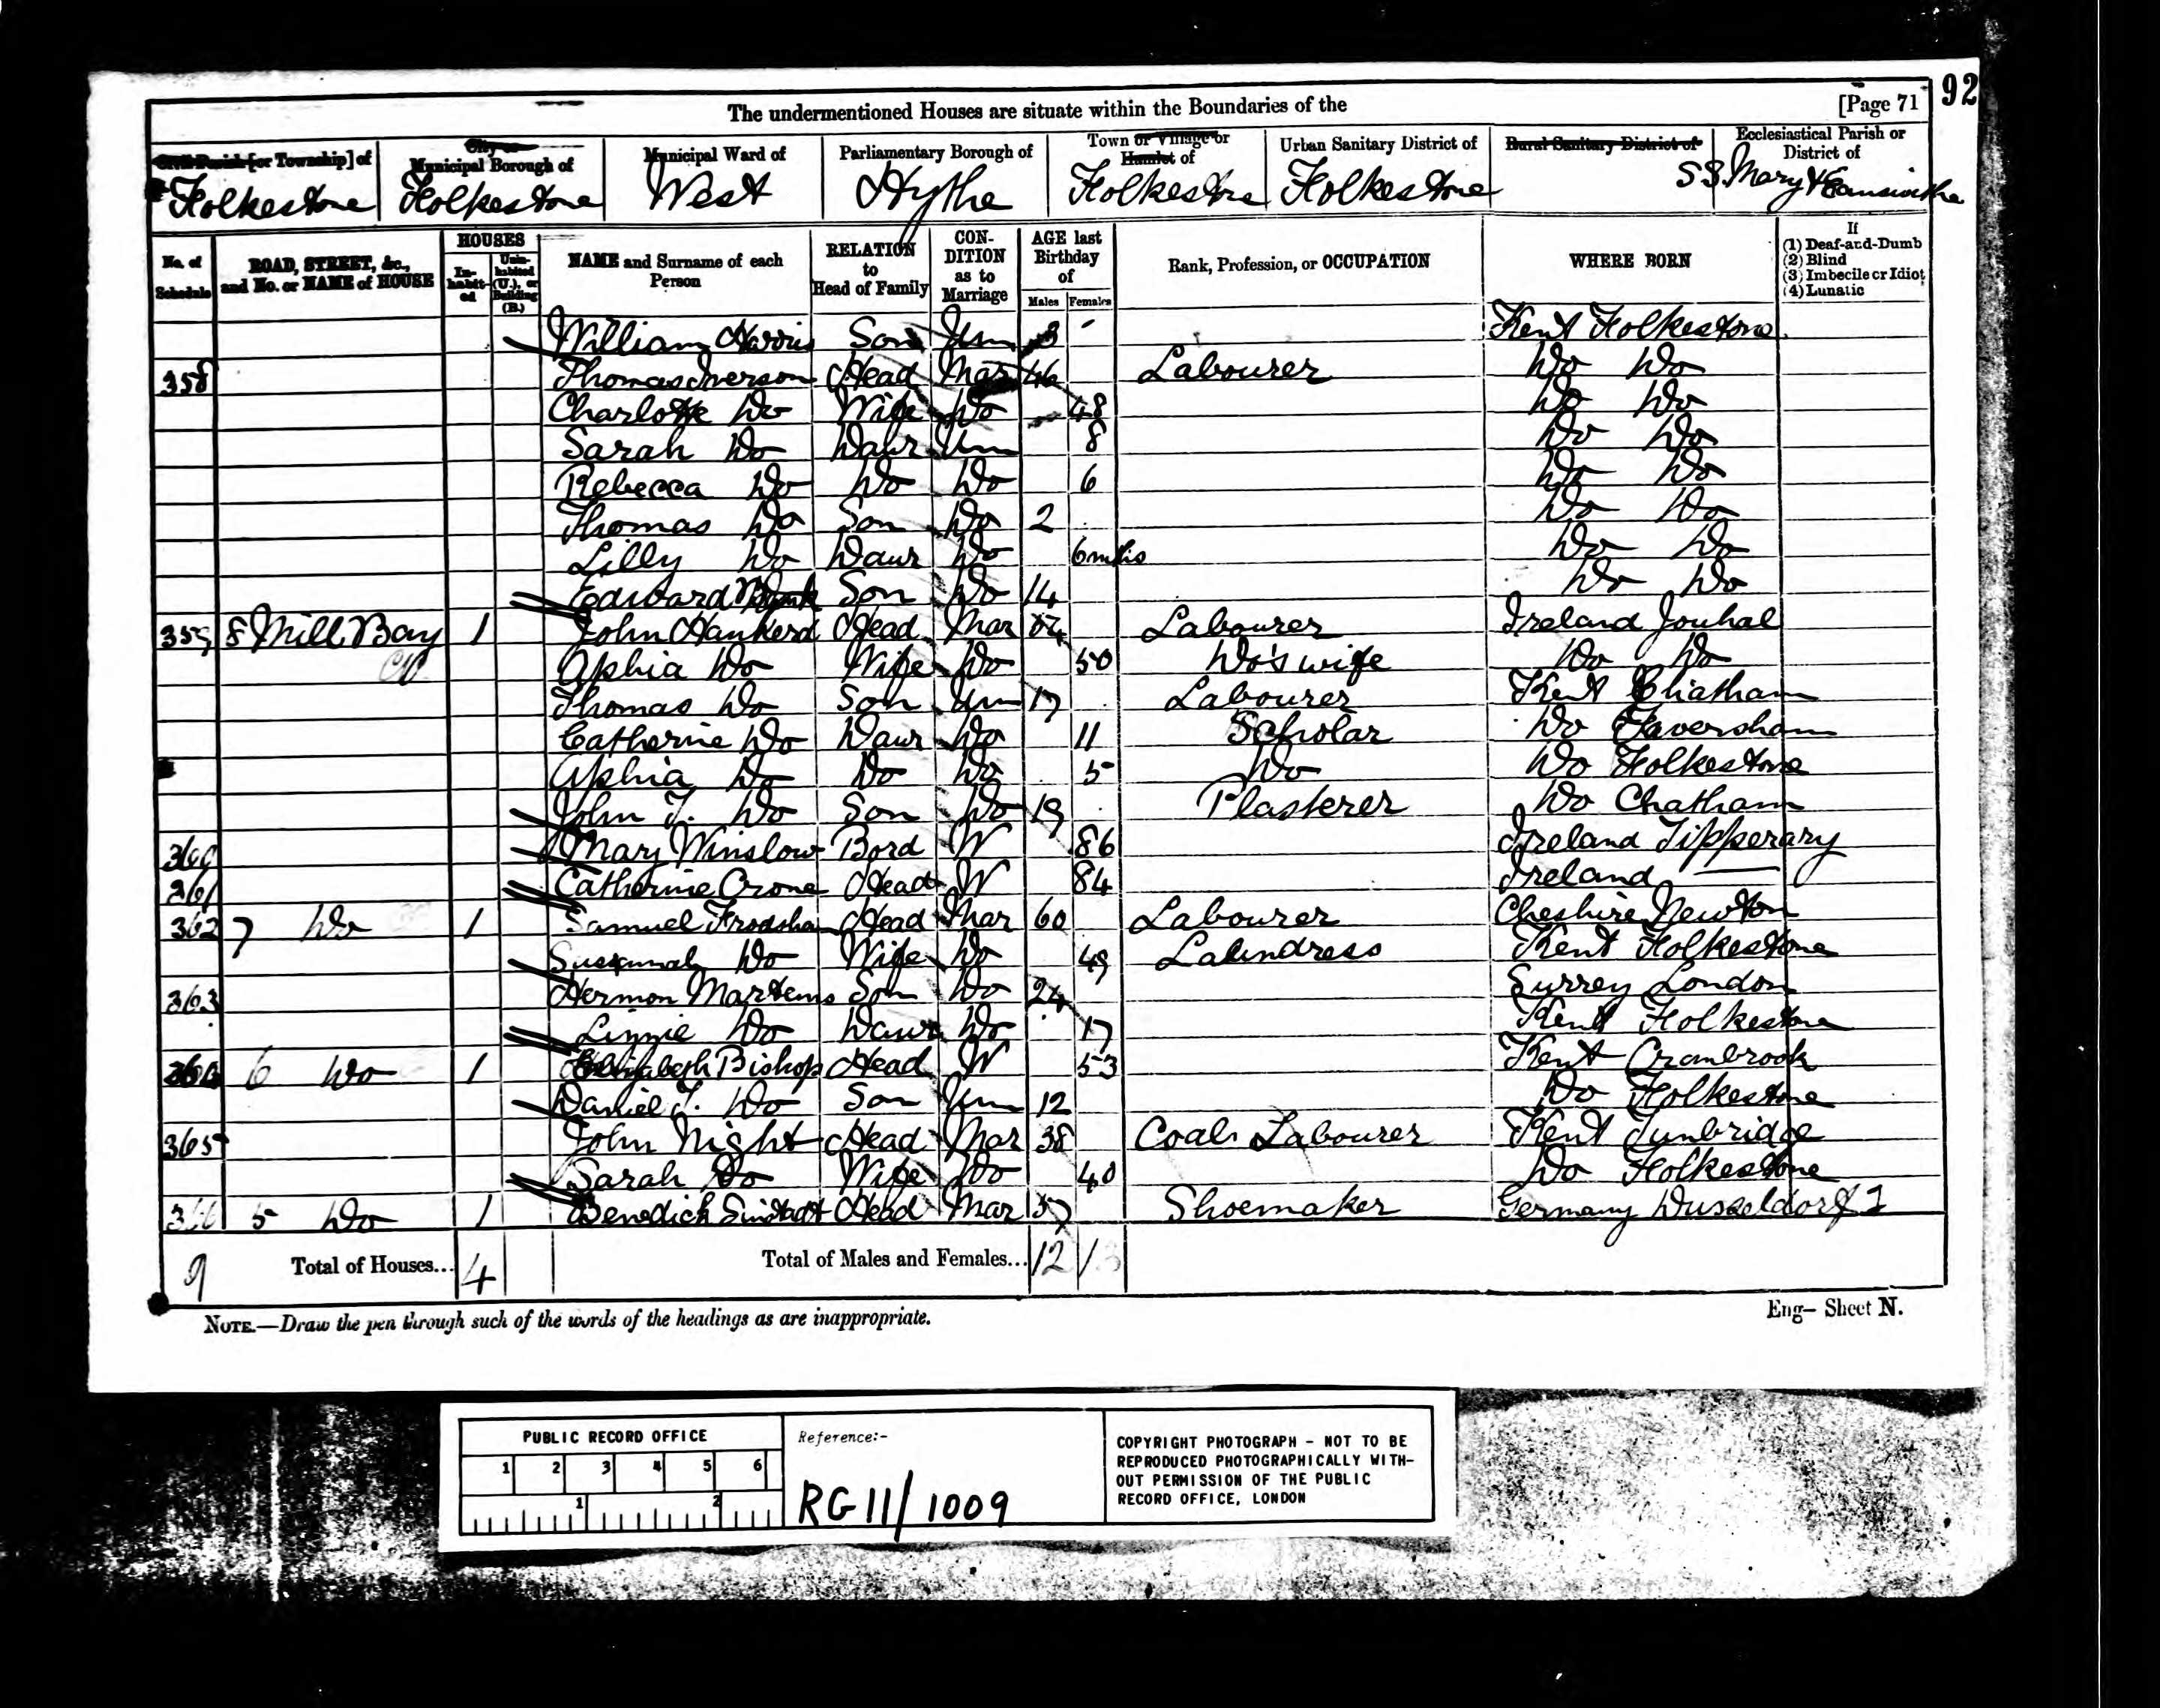 92
The undermentioned Houses are situate within the Boundaries of the [Page 71
Civil Parish [or Township] of City or Municipal Borough of Municipal Ward of Parliamentary Borough of Town or Village or Hamlet of Urban Sanitary District of Rural Sanitary District of Ecclesiastical Parish or District of
Folkestone Folkestone West Hythe Folkestone Folkestone SS. Mary &
No. of Schedule ROAD, STREET, &c., and No. or NAME of HOUSE HOUSES Inhabited Uninhabited (U.), or Building (B.) NAME and Surname of each Person RELATION to Head of Family CONDITION as to Marriage AGE last Birthday of Males Females Rank, Profession, or OCCUPATION WHERE BORN If (1) Deaf-and-Dumb (2) Blind (3) Imbecile or Idiot (4) Lunatic
William Harris Son Unm 3 Kent Folkestone
358 Thomas Iverson Head Mar 46 Labourer Do Do
Charlotte Do Wife Do 48 Do Do
Sarah Do Daur Unm 8 Do Do
Rebecca Do Do Do 6 Do Do
Thomas Do Son Do 2 Do Do
Lilly Do Daur Do 6mths Do Do
Edward Son Do 14 Do Do
359 8 Mill Bay 1 John Hankerd Head Mar Labourer Ireland Youhal
Aphia Do Wife Do 50 Do's wife Do Do
Thomas Do Son Unm 17 Labourer Kent Chatham
Catherine Do Daur Do 11 Scholar Do Faversham
Aphia Do Do Do 5 Do Do Folkestone
John T. Do Son Do 19 Plasterer Do Chatham
360 Mary Winslow Bord W 86 Ireland Tipperary
361 Catherine Crone Head W 84 Ireland —
362 7 Do 1 Samuel Frodsham Head Mar 60 Labourer Cheshire Newton
Susannah Do Wife Do 49 Laundress Kent Folkestone
363 Hermon Martems Son Do 24 Surrey London
Linnie Do Daur Do 17 Kent Folkestone
364 6 Do 1 Elizabeth Bishop Head W 53 Kent Cranbrook
Daniel T. Do Son Unm 12 Do Folkestone
365 John Night Head Mar 38 Coal Labourer Kent Tunbridge
Sarah Do Wife Do 40 Do Folkestone
366 5 Do 1 Benedich Head Mar 37 Shoemaker Germany Dusseldorf
9 Total of Houses... 4 Total of Males and Females... 12 13
NOTE.—Draw the pen through such of the words of the headings as are inappropriate. Eng— Sheet N.
PUBLIC RECORD OFFICE
1 2 3 4 5 6
1 2
Reference:-
RG 11/1009
COPYRIGHT PHOTOGRAPH - NOT TO BE
REPRODUCED PHOTOGRAPHICALLY WITH-
OUT PERMISSION OF THE PUBLIC
RECORD OFFICE, LONDON